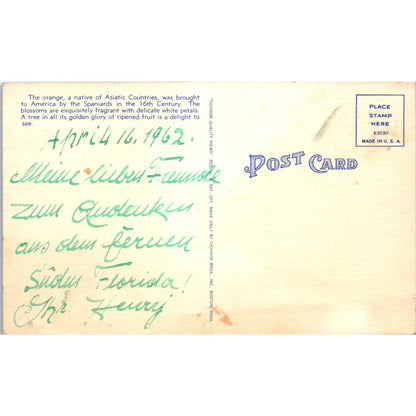 The orange, a native of Asiatic Countries, was brought
to America by the Spaniards in the 16th Century. The
blossoms are exquisitely fragrant with delicate white petals.
A tree in all its golden glory of ripened fruit is a delight to
see.
April 16. 1962.
Meine lieben Freunde
zum Andenken
aus dem fernen
Süden Florida!
Ihr Henry
"TICHNOR QUALITY VIEWS," REG. U. S. PAT. OFF. MADE ONLY BY TICHNOR BROS., INC., BOSTON, MASS.
POST CARD
PLACE
STAMP
HERE
63030
MADE IN U. S. A.